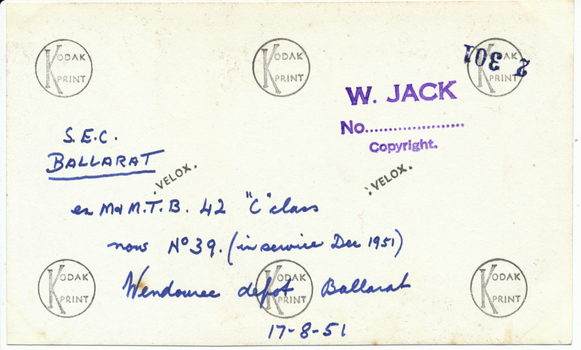 KODAK PRINT
KODAK PRINT
KODAK PRINT
2 301
W. JACK
No.....................
Copyright.
S.E.C.
BALLARAT
VELOX.
VELOX.
ex M&M.T.B. 42 "C" class
now No 39. (in service Dec 1951)
Wendouree depot Ballarat
17-8-51
KODAK PRINT
KODAK PRINT
KODAK PRINT